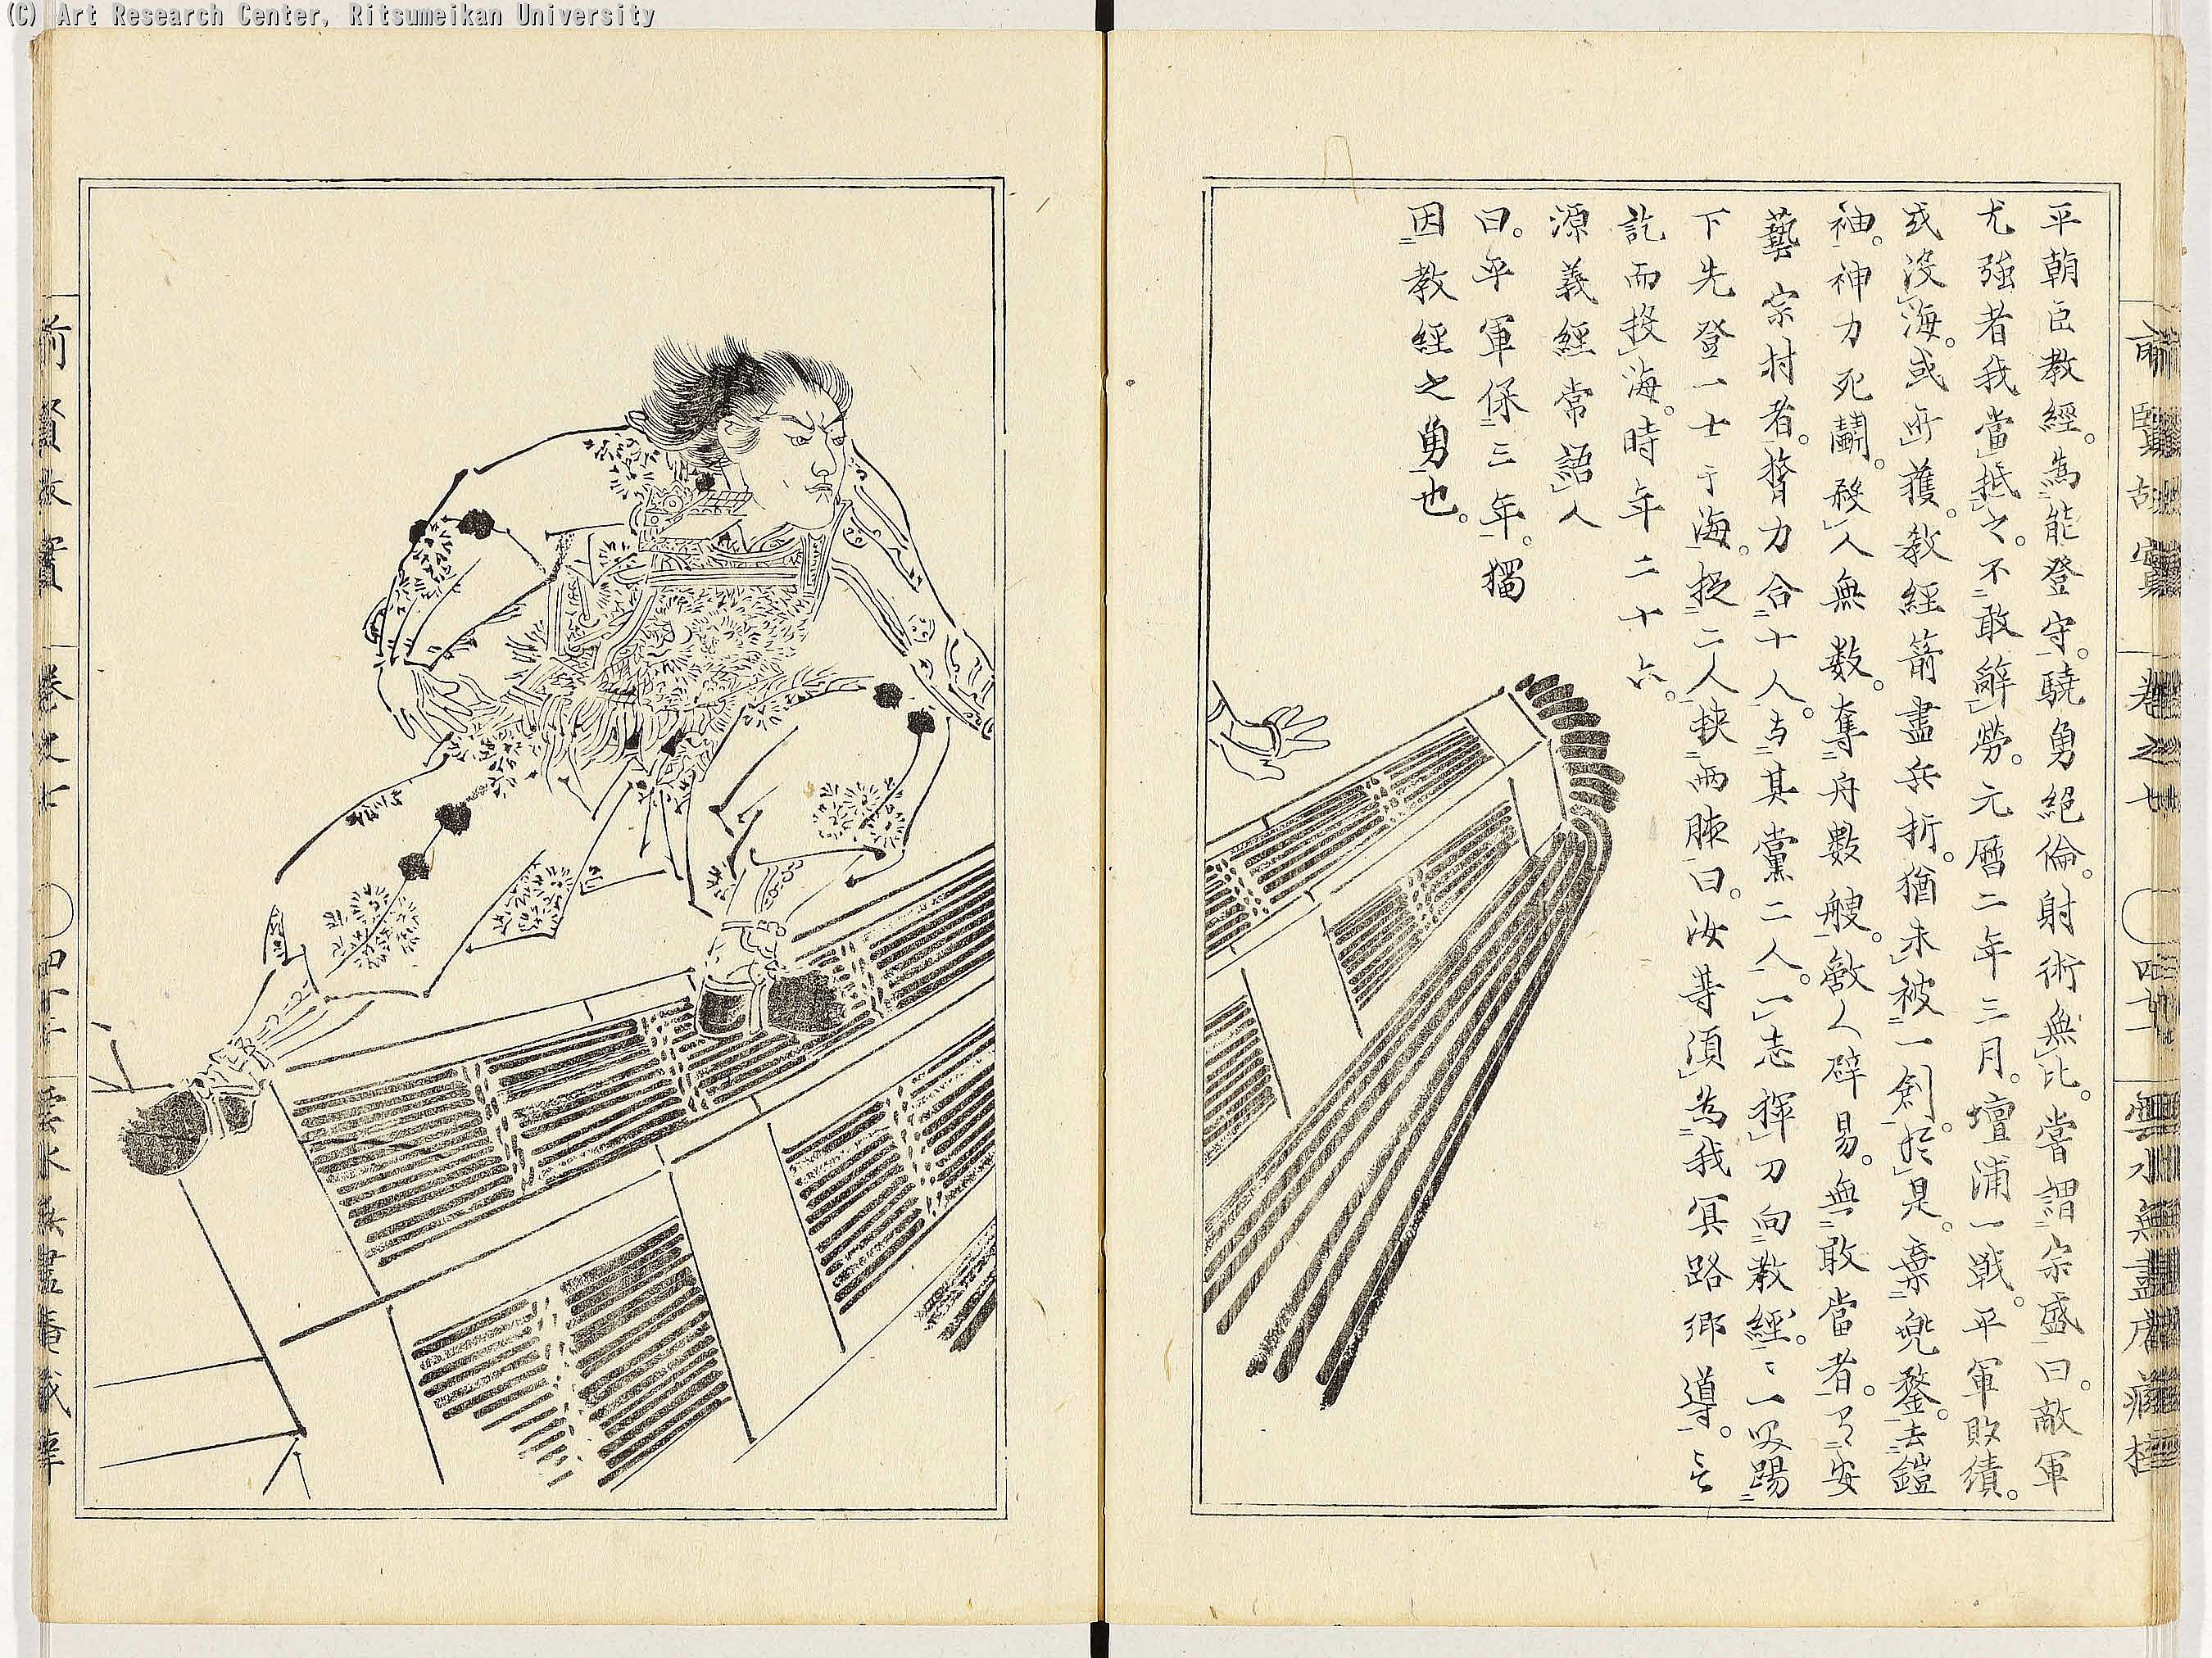 (C) Art Research Center, Ritsumeikan University
平朝臣教經。為能登守。驍勇絕倫。射術無比。嘗謂宗盛曰。敵軍
尤強者我當抵之。不敢辭勞。元曆二年三月。壇浦一戰。平軍敗績。
或沒海。或所獲。教經箭盡兵折。猶未被一創。於是。棄兜鍪。去鎧
袖。神力死鬭。殺人無数。奪舟數艘。敵人辟易。無敢當者。乃安
藝宗村者。膂力合十人。与其黨二人。一志揮刀向教經。〻一叹踢
下先登一士于海。捉二人挾兩腋曰。汝等須為我冥路鄉導。言
訖而投海。時年二十六。
源義經常語人
曰。平軍保三年。獨
因教經之勇也。
前賢故實 卷之七 四十一
前賢故實 卷之七